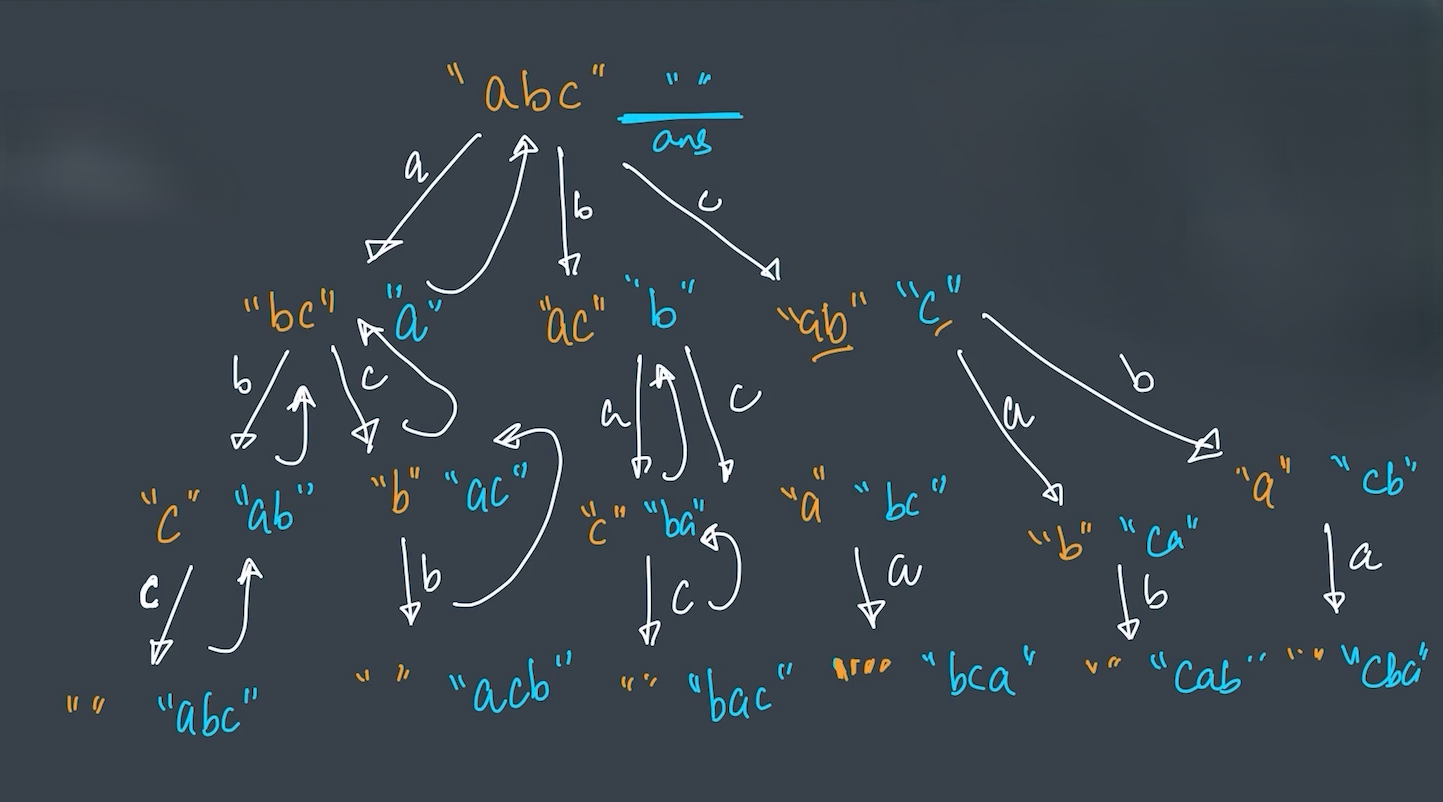 "abc" " "
ans
a b c
"bc" "a" "ac" "b" "ab" "c"
b c a c a b
"c" "ab" "b" "ac" "c" "ba" "a" "bc" "b" "ca" "a" "cb"
c b c a b a
" " "abc" " " "acb" " " "bac" "bca" " " "cab" " " "cba"